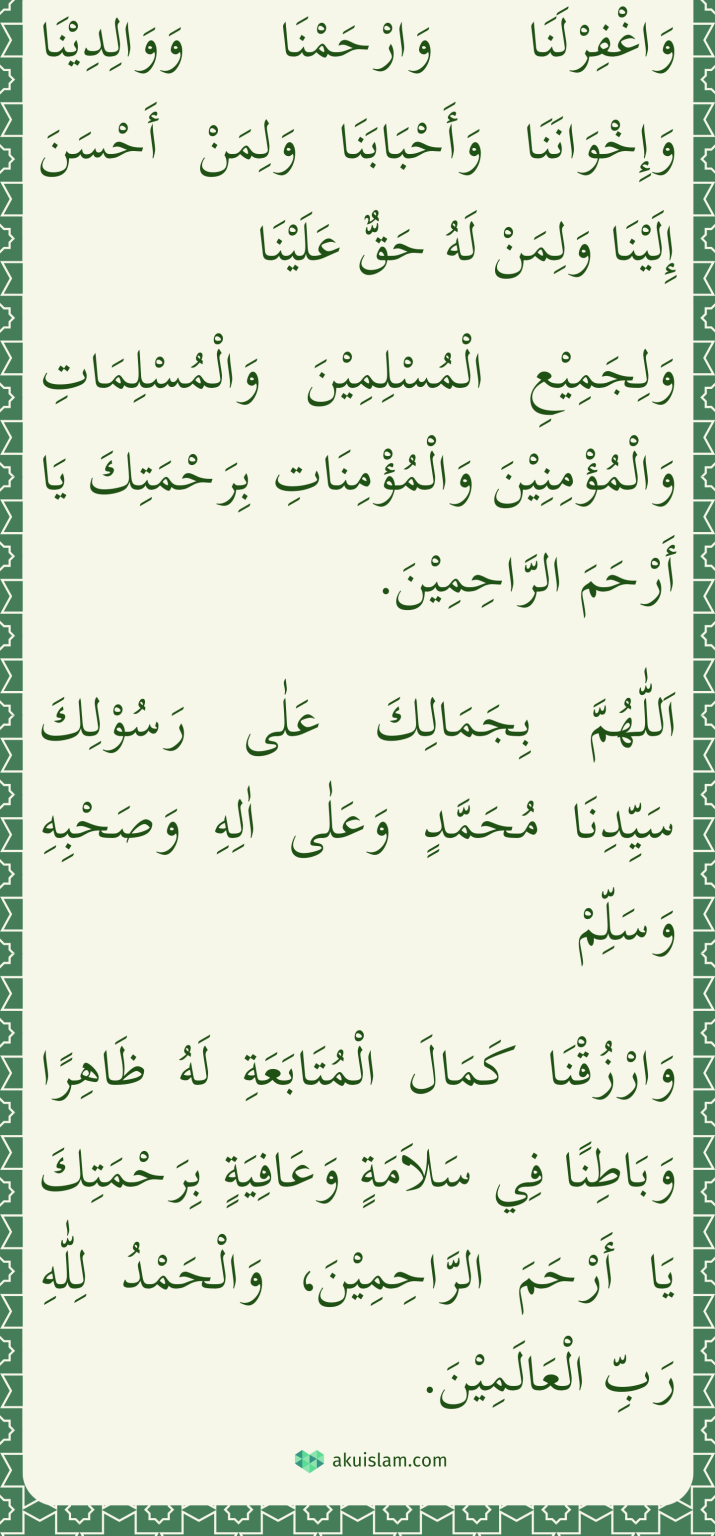 وَاغْفِرْلَنَا وَارْحَمْنَا وَوَالِدِيْنَا
وَإِخْوَانَنَا وَأَحْبَابَنَا وَلِمَنْ أَحْسَنَ
إِلَيْنَا وَلِمَنْ لَهُ حَقٌّ عَلَيْنَا
وَلِجَمِيْعِ الْمُسْلِمِيْنَ وَالْمُسْلِمَاتِ
وَالْمُؤْمِنِيْنَ وَالْمُؤْمِنَاتِ بِرَحْمَتِكَ يَا
أَرْحَمَ الرَّاحِمِيْنَ.
اَللّٰهُمَّ بِجَمَالِكَ عَلٰى رَسُوْلِكَ
سَيِّدِنَا مُحَمَّدٍ وَعَلٰى اٰلِهِ وَصَحْبِهِ
وَسَلِّمْ
وَارْزُقْنَا كَمَالَ الْمُتَابَعَةِ لَهُ ظَاهِرًا
وَبَاطِنًا فِي سَلاَمَةٍ وَعَافِيَةٍ بِرَحْمَتِكَ
يَا أَرْحَمَ الرَّاحِمِيْنَ، وَالْحَمْدُ لِلّٰهِ
رَبِّ الْعَالَمِيْنَ.
akuislam.com